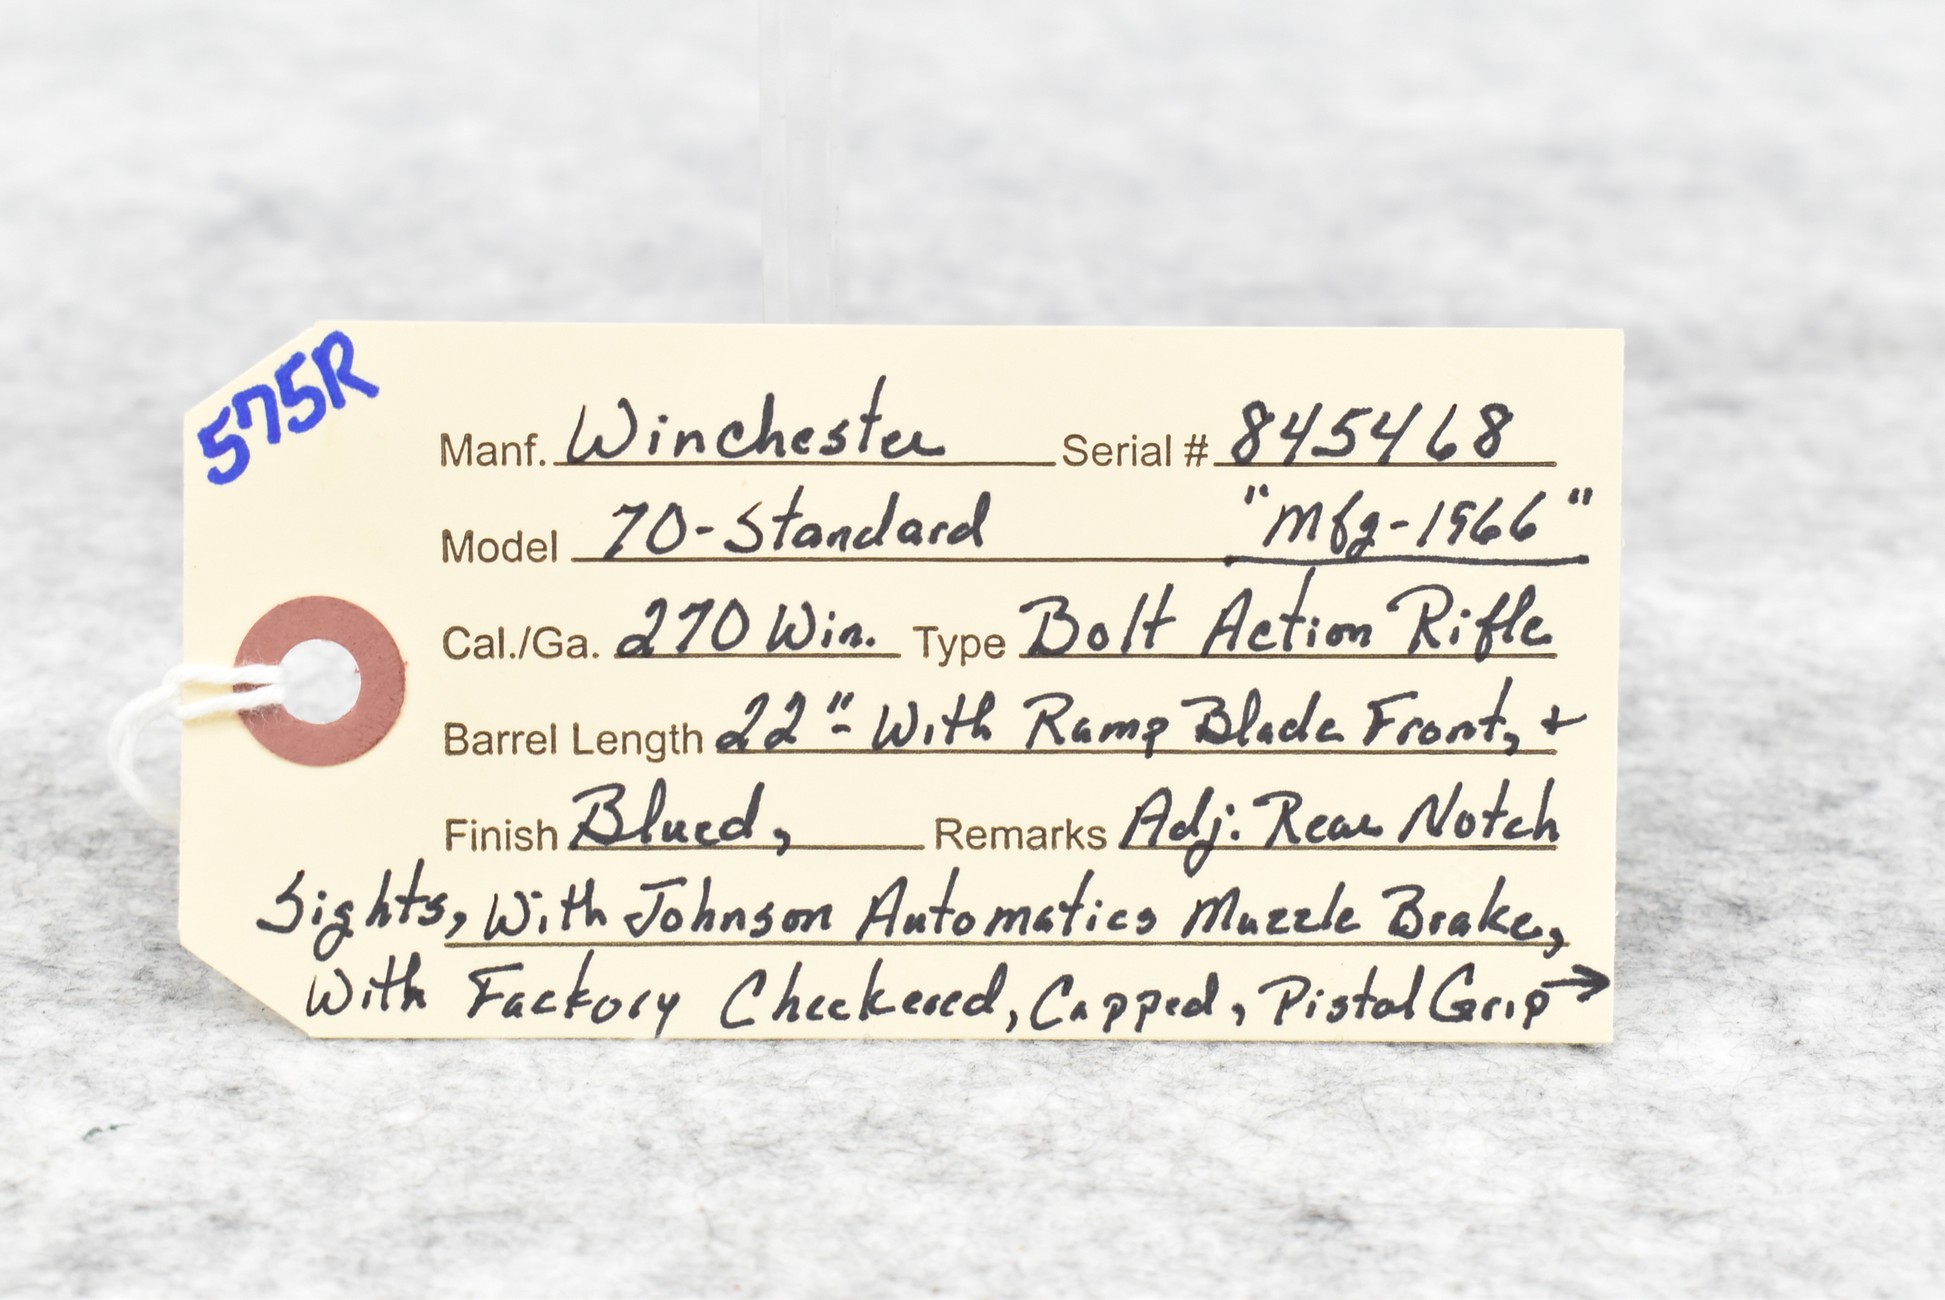 575R
Manf. Winchester Serial # 845468
Model 70-Standard "Mfg-1966"
Cal./Ga. 270 Win. Type Bolt Action Rifle
Barrel Length 22"- With Ramp Blade Front, +
Finish Blued, Remarks Adj. Rear Notch
Sights, With Johnson Automatics Muzzle Brake,
With Factory Checkered, Capped, Pistol Grip →